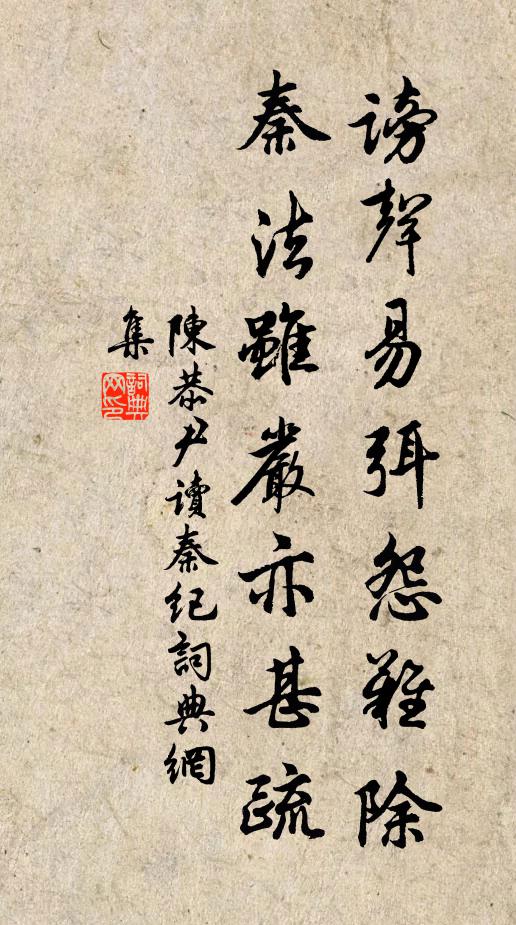 謗聲易弭怨難除
秦法雖嚴亦甚疏
陳恭尹讀秦紀詞典網
集
詞典
网印